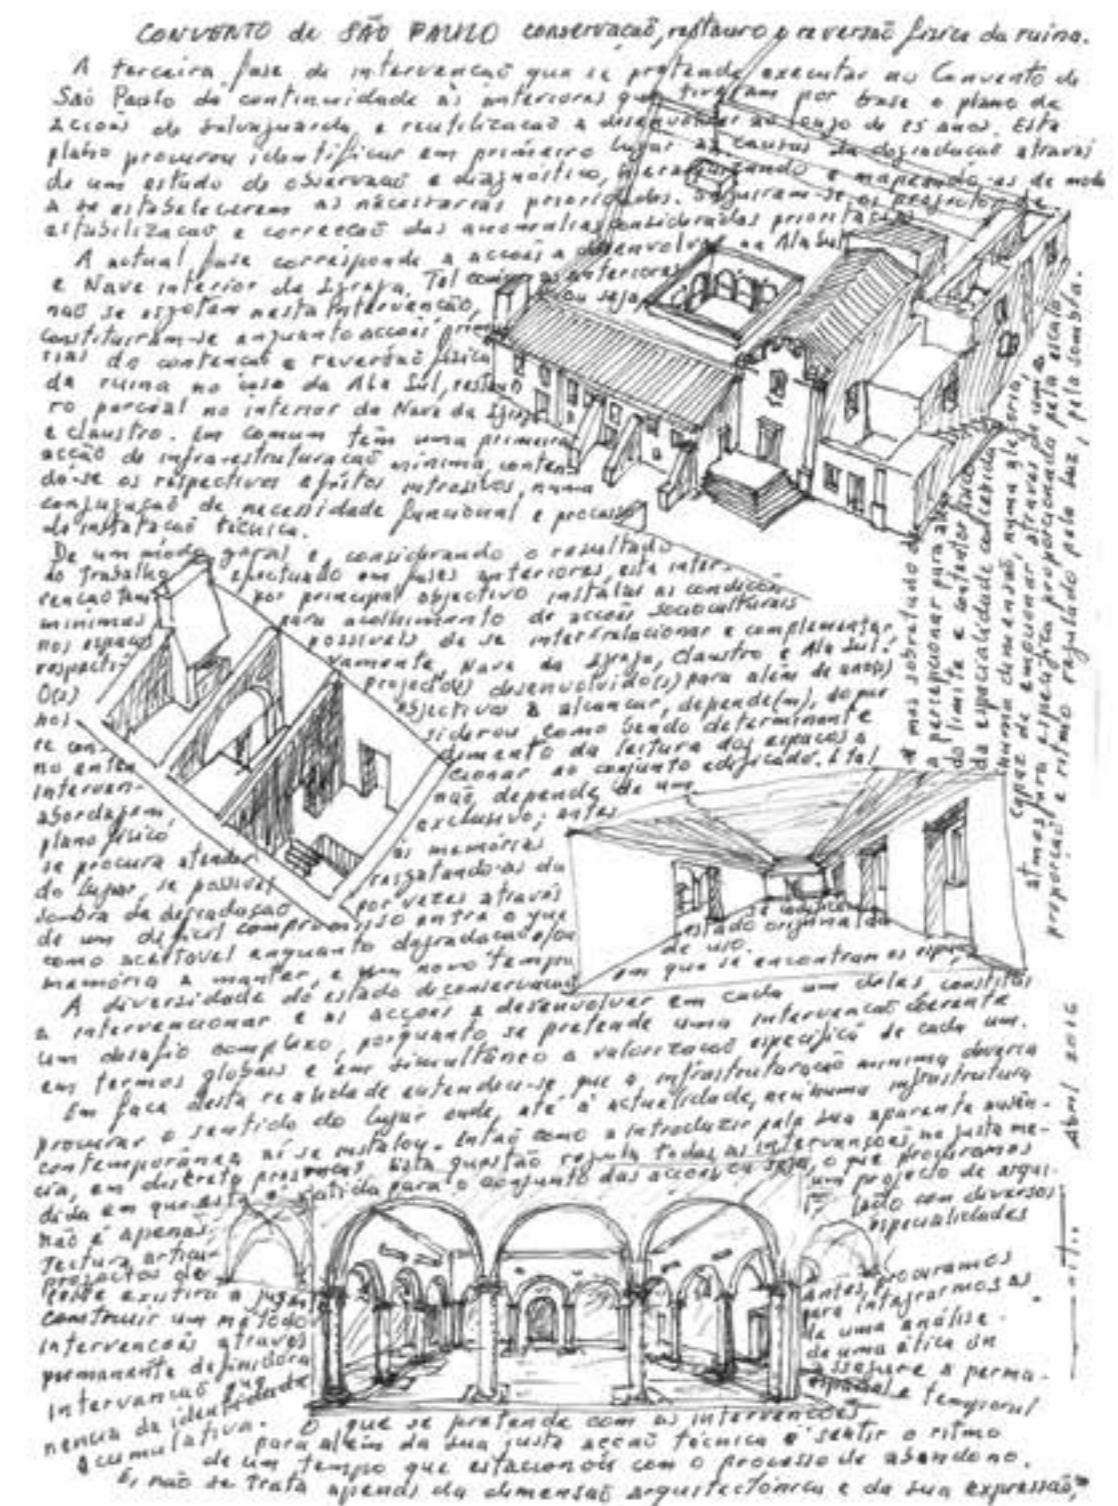 CONVENTO de SÃO PAULO conservação, restauro e reversão física da ruina.
A terceira fase de intervenção que se pretende executar no Convento de
São Paulo dá continuidade às anteriores que tiveram por base o plano de
acções de salvaguarda e reutilização a desenvolver ao longo de 25 anos. Este
plano procurou identificar em primeiro lugar as causas da degradação através
de um estudo de observação e diagnóstico, hierarquizando e mapeando-as de modo
a se estabelecerem as necessárias prioridades. Seguiram-se os projectos de
estabilização e correcção das anomalias consideradas prioritárias
A actual fase corresponde a acções a desenvolver na Ala Sul
e Nave interior da Igreja. Tal como as anteriores
não se esgotam nesta intervenção, ou seja
constituiram-se enquanto acções primá
rias de contenção e reversão física
da ruina no caso da Ala Sul, restau
ro parcial no interior da Nave da Igreja
e claustro. Em comum têm uma primeira
acção de infra-estruturação mínima, conten
do-se os respectivos efeitos intrusivos, numa
conjugação de necessidade funcional e processo
de instalação técnica.
De um modo geral e, considerando o resultado
do trabalho efectuado em fases anteriores, esta inter-
venção tem por principal objectivo instalar as condições
mínimas para acolhimento de acções socioculturais
nos espaços possíveis de se interrelacionar e complementar,
respecti- vamente, Nave da Igreja, Claustro e Ala Sul.
O(s) projecto(s) desenvolvido(s) para além do(s)
nos objectivos a alcançar, depende(m), do que
se con- siderou, como sendo determinante
no enten dimento da leitura dos espaços a
interven- cionar ao conjunto edificado. E tal
abordagem, não depende de um
plano físico exclusivo; antes
se procura atender às memórias
do lugar, se possível resgatando-as da
sombra da degradação por vezes através
de um difícil compromisso entre o que se
como aceitável enquanto degradação e/ou estado original
memória a manter, e um novo tempo de uso.
A diversidade do estado de conservação em que se encontram os espaços
a intervencionar e as acções a desenvolver em cada um deles constitui
um desafio complexo, porquanto se pretende uma intervenção coerente
em termos globais e em simultâneo a valorização específica de cada um.
Em face desta realidade entendeu-se que a infrastruturação mínima deveria
procurar o sentido do lugar onde, até à actualidade, nenhuma infrastrutura
contemporânea aí se instalou. Então como a introduzir pela sua aparente ausên-
cia, em discreta presença. Esta questão regula todas as intervenções, na justa me-
dida em que esta é válida para o conjunto das acções ou seja, o que procuramos
não é apenas um projecto de arqui-
tectura articu- lado com diversos
projectos de especialidades
construir um método antes, procuramos
intervenções através para integrarmos as
permanente definidora de uma análise
intervenção que de uma ética de
assegure a perma-
nencia da identidade espacial e temporal
acumulativa. O que se pretende com as intervenções
para além da sua justa acção técnica é sentir o ritmo
de um tempo que estacionou com o processo de abandono.
E, não se trata apenas da dimensão arquitectónica e da sua expressão,
mas sobretudo de
a percepcionar para além
do limite e contentor físico
da espacialidade concebida
numa dimensão, numa alegoria,
capaz de emocionar através de uma
atmosfera específica proporcionada pela escala,
proporção e ritmo regulado pela luz, pela sombra.
Abril 2016